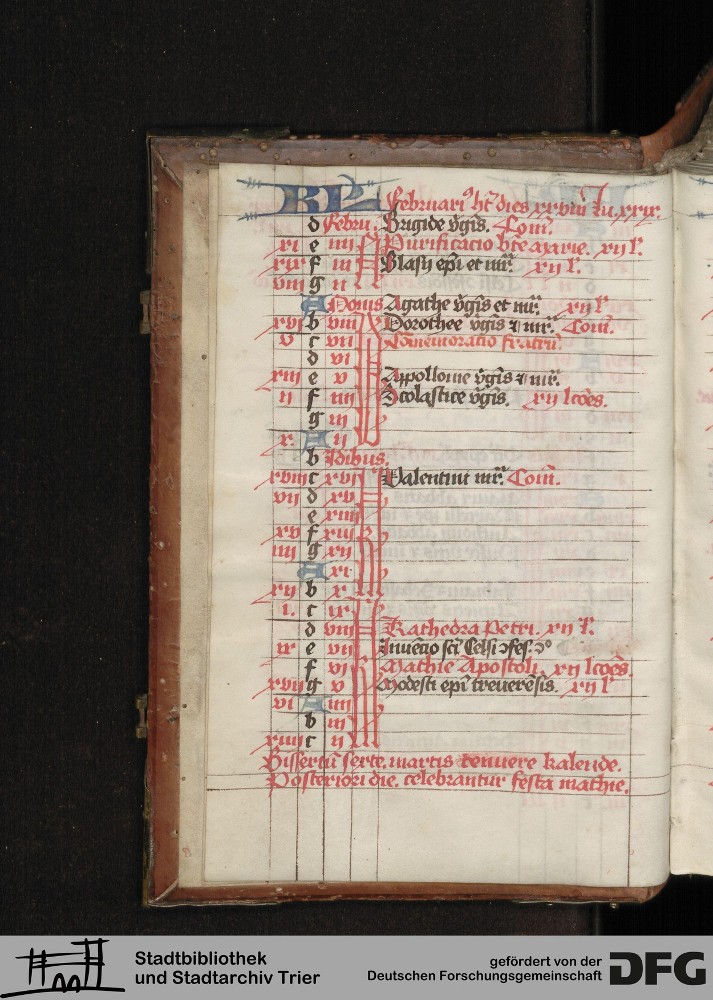 KL Februari⁹ hꝫ dies xxviii Lu. xxix.
d Febru. Brigide v̄gīs. Com̄.
xi e iiii Purificacio bt̄e marie. xii l̄.
xix f iii Blasii ep̄i et mr̄. xii l̄.
viii g ii
A Nonis Agathe v̄gīs et mr̄. xii l̄
xvi b viii Dorothee v̄gīs ⁊ mr̄. Com̄.
v c vii Cōmemoracio fratrū.
d vi
xiii e v Appollonie v̄gīs ⁊ mr̄.
ii f iiii Scolastice v̄gīs. xii lcōes.
g iii
x A ii
b Idibus.
xviii c xvi Valentini mr̄. Com̄.
vii d xv
e xiiii
xv f xiii
iiii g xii
A xi
xii b x
i. c ix
d viii Kathedra Petri. xii l̄.
ix e vii Inuēcio sc̄i Celsi ↄfes.
f vi Mathie Apostoli. xii lcōes.
xvii g v Modesti ep̄i treuerēsis. xii l̄
vi A iiii
b iii
xiiii c ii
Bissextū sexte. martis tenuere kalende.
Posteriori die. celebrantur festa mathie.
Stadtbibliothek
und Stadtarchiv Trier
gefördert von der
Deutschen Forschungsgemeinschaft DFG